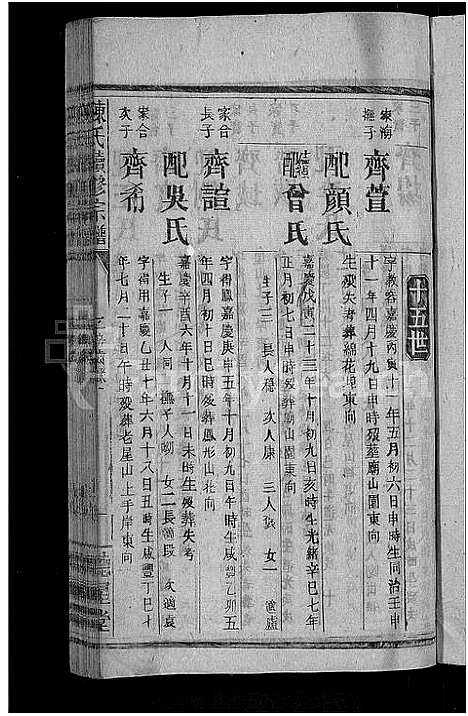 十五世
家海撫子
齊萱
字教容嘉慶丙寅十一年五月初六日申時生同治壬申
十一年四月十九日申時殁葬廟山園東向
配顏氏
生殁失考葬綿花埠東向
繼配曾氏
嘉慶戊寅二十三年十月初九日亥時生光緒辛巳七年
正月初七日申時殁葬廟山園東向
生子三 長人穩 次人康 三人 女一 適盧
家合長子
齊諠
字得鳳嘉慶庚申五年十月初九日午時生咸豐乙卯五
年四月初十日巳時殁葬鳳形山北向
配吳氏
嘉慶辛酉六年十月十一日未時生殁葬失考
生子一 人同 撫子人 女二長適段 次適袁
家合次子
齊希
字得用嘉慶乙丑十年六月十八日丑時生咸豐丁巳七
年七月二十日午時殁葬老屋山上手岸東向
陳氏續修宗譜